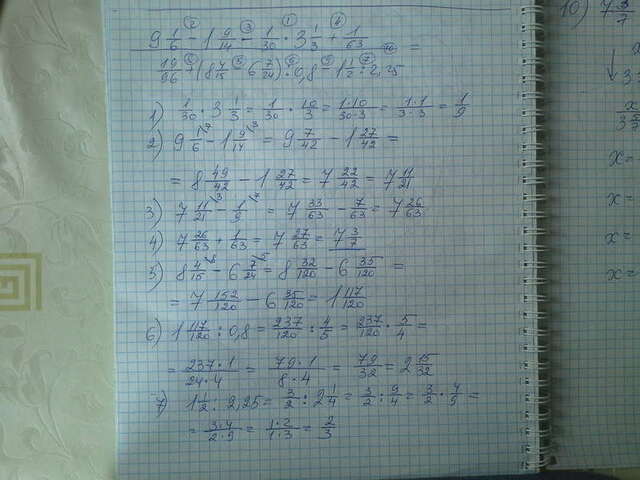 9 1/6 - 1 9/14 - 1/30 · 3 1/3 + 1/63
19/96 + (8 4/15 - 6 7/24) : 0,8 - 1 1/2 : 2,25 =
1) 1/30 · 3 1/3 = 1/30 · 10/3 = 1·10/30·3 = 1·1/3·3 = 1/9
2) 9 1/6 - 1 9/14 = 9 7/42 - 1 27/42 =
= 8 49/42 - 1 27/42 = 7 22/42 = 7 11/21
3) 7 11/21 - 1/9 = 7 33/63 - 7/63 = 7 26/63
4) 7 26/63 + 1/63 = 7 27/63 = 7 3/7
5) 8 4/15 - 6 7/24 = 8 32/120 - 6 35/120 =
= 7 152/120 - 6 35/120 = 1 117/120
6) 1 117/120 : 0,8 = 237/120 : 4/5 = 237/120 · 5/4 =
= 237·1/24·4 = 79·1/8·4 = 79/32 = 2 15/32
7) 1 1/2 : 2,25 = 3/2 : 2 1/4 = 3/2 : 9/4 = 3/2 · 4/9 =
= 3·4/2·9 = 1·2/1·3 = 2/3
10) 7 3/7
3
x =
x =
x =
x =